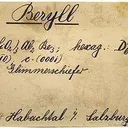 Beryll
O₃)₆ Al₂ Be₃; hexag.: D₆
10) c-(0001)
Glimmerschiefer
Habachtal i/ Salzburg